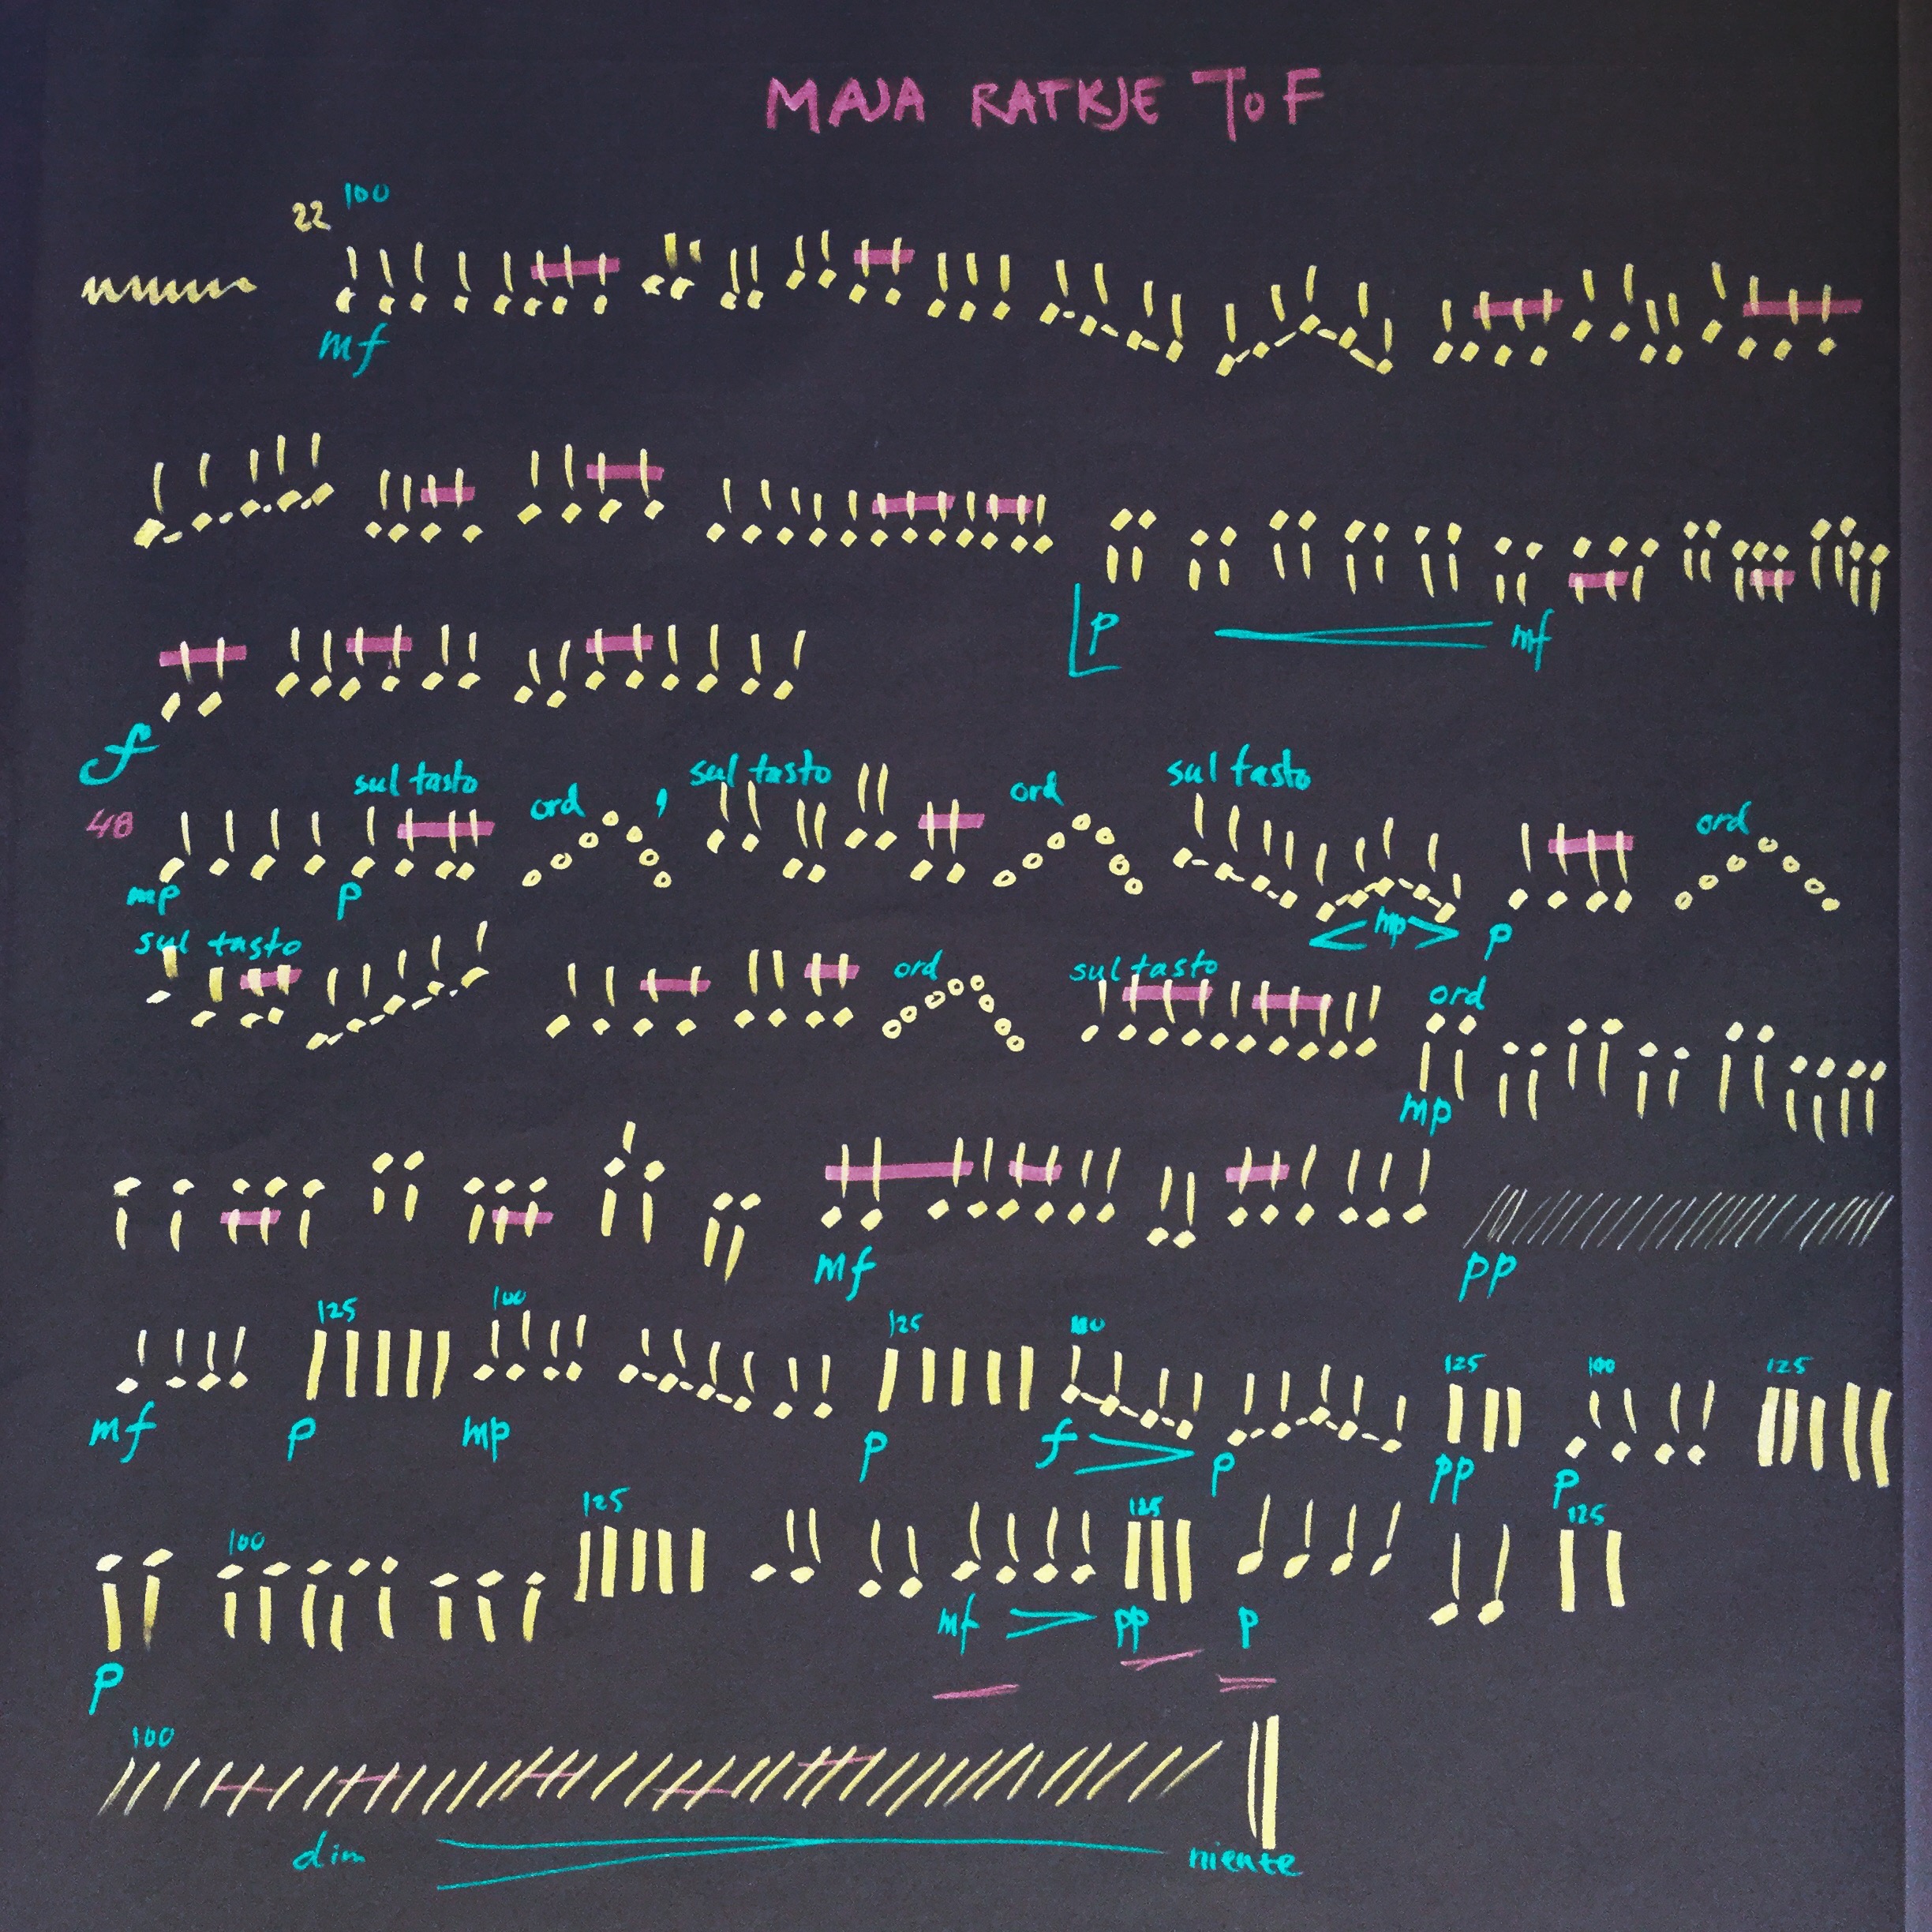 MAJA RATKJE ToF
22 100
mf
p mf
f
sul tasto ord , sul tasto ord sul tasto ord
48
mp p mp p
sul tasto ord sul tasto ord
mp
mf pp
125 100 125 125 100 125
mf p mp p f p pp p
100 125 125 125
mf pp p
p
100
dim niente